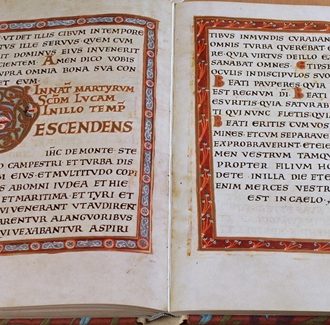 UT DET ILLIS CIBUM IN TEMPORE
TUS ILLE SERVUS QUEM CUM
IT DOMINUS EIUS INVENERIT
CIENTEM. AMEN DICO VOBIS
UPRA OMNIA BONA SUA CON
ET EUM.
IN NAT MARTYRUM
SCDM LUCAM
IN ILLO TEMP
DESCENDENS
IHC DE MONTE STE
CAMPESTRI ET TURBA DIS
M EIUS ET MULTITUDO COPI
IS AB OMNI IUDEA ET HIE
ET MARITIMA ET TYRI ET
VI VENERANT UT AUDIRENT
ARENTUR A LANGUORIBUS
UI VEXABANTUR A SPIRI
TIBUS INMUNDIS CURABAN
OMNIS TURBA QUEREBAT
RE QUIA VIRTUS DE ILLO EX
SANABAT OMNES ET IPSE
OCULIS IN DISCIPULOS SUO
BEATI PAUPERES QUIA
EST REGNUM DI BEATI
ESURITIS QUIA SATURAB
TI QUI NUNC FLETIS QUIA
BEATI ERITIS CUM VOS
MINES ET CUM SEPARA
EXPROBRAVERINT ET EIE
MEN VESTRUM TAM
PROPTER FILIUM HO
DETE IN ILLA DIE ET E
ENIM MERCES VESTR
EST IN CAELO